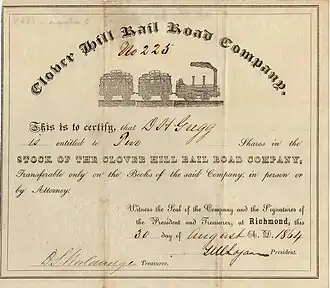 Clover Hill Rail Road Company.
No 225
This is to certify, that D H Gregg
is entitled to Two Shares in the
STOCK OF THE CLOVER HILL RAIL ROAD COMPANY,
Transferable only on the Books of the said Company, in person or
by Attorney.
Witness the Seal of the Company and the Signatures
of the President and Treasurer, at Richmond, this
30 day of August A. D. 1864
President.
Treasurer.